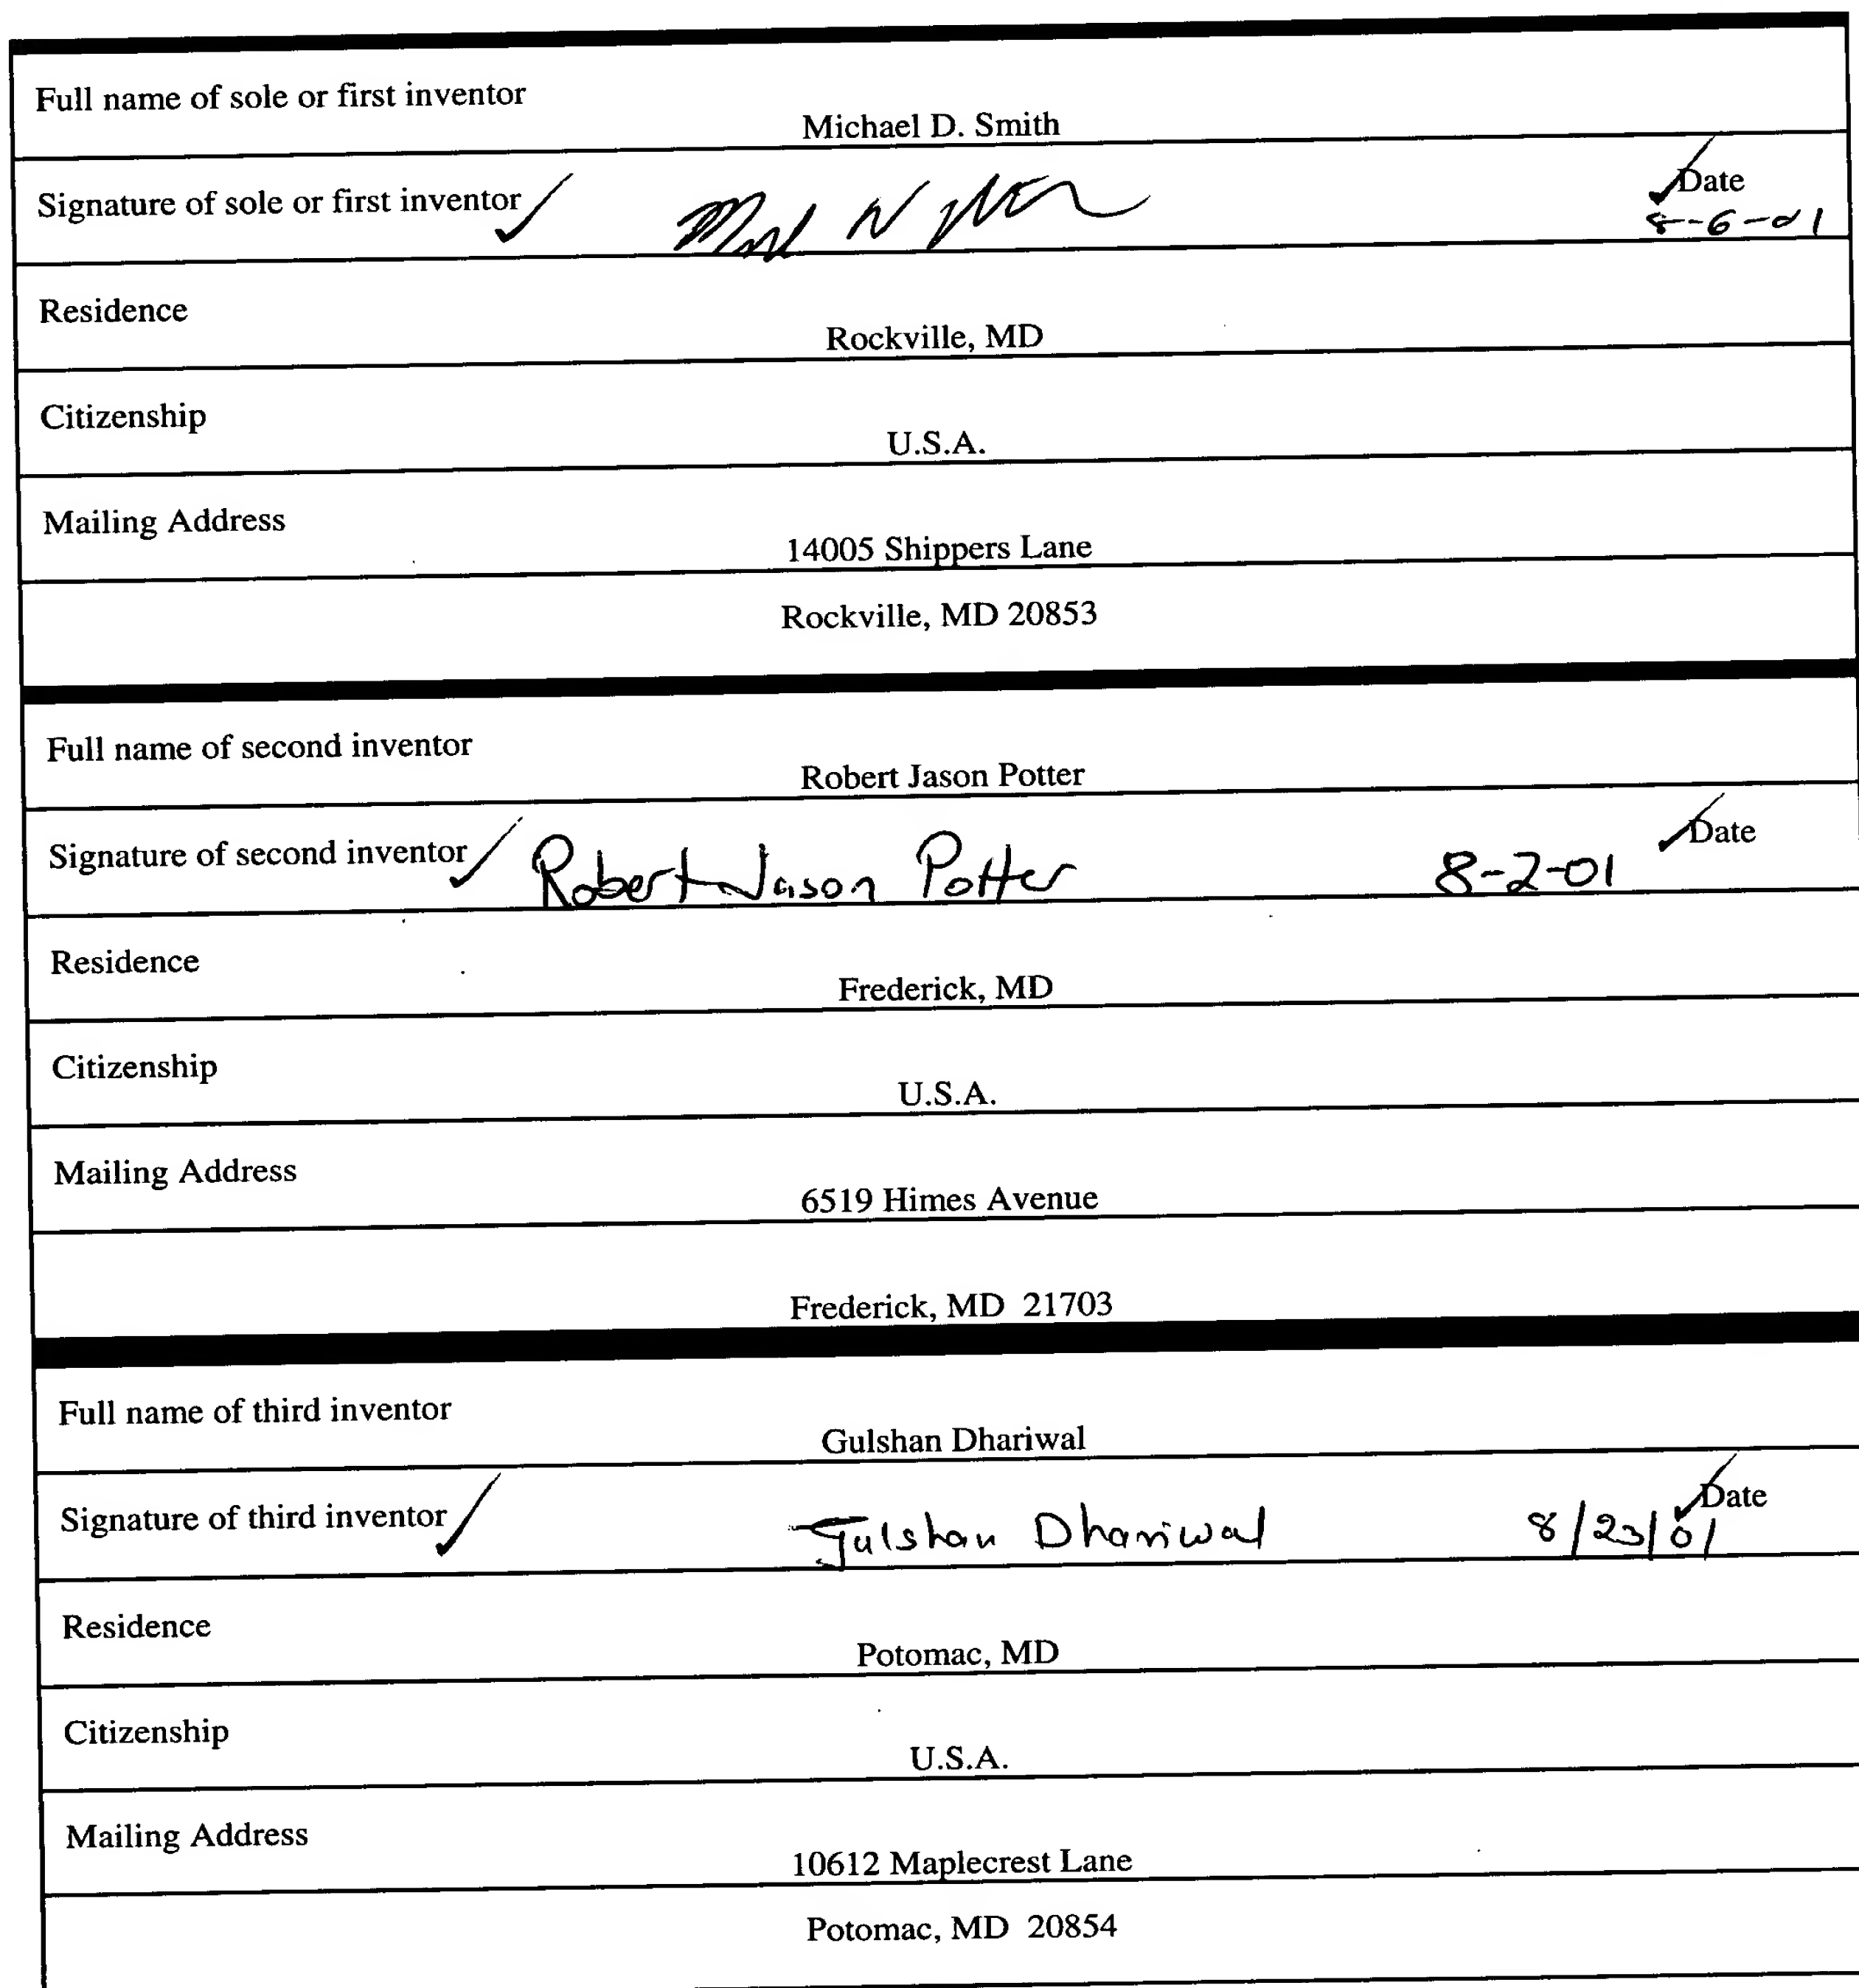 Full name of sole or first inventor
Michael D. Smith
Signature of sole or first inventor Date
8-6-01
Residence
Rockville, MD
Citizenship
U.S.A.
Mailing Address
14005 Shippers Lane
Rockville, MD 20853
Full name of second inventor
Robert Jason Potter
Signature of second inventor Robert Jason Potter 8-2-01 Date
Residence
Frederick, MD
Citizenship
U.S.A.
Mailing Address
6519 Himes Avenue
Frederick, MD 21703
Full name of third inventor
Gulshan Dhariwal
Signature of third inventor Gulshan Dhariwal 8/23/01 Date
Residence
Potomac, MD
Citizenship
U.S.A.
Mailing Address
10612 Maplecrest Lane
Potomac, MD 20854